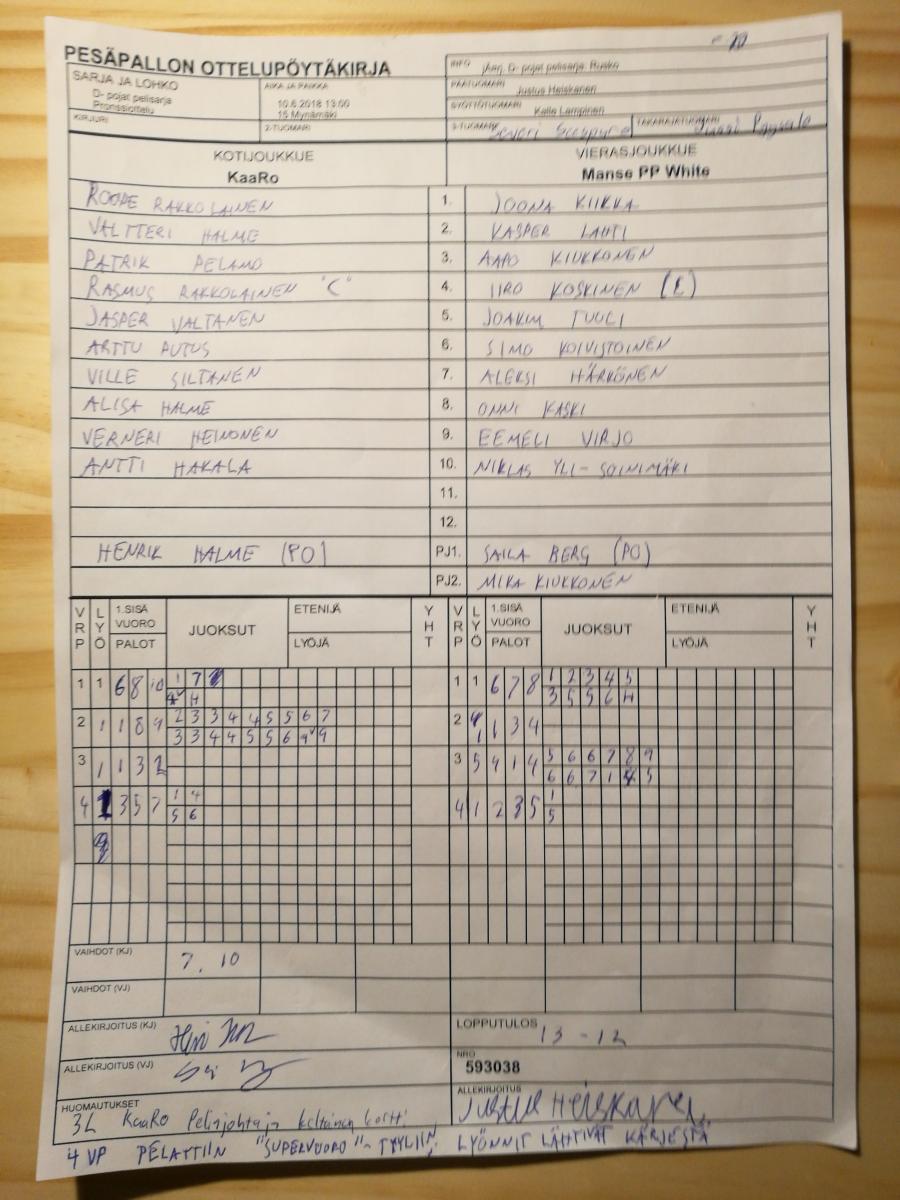 PESÄPALLON OTTELUPÖYTÄKIRJA
SARJA JA LOHKO
D- pojat pelisarja
Pronssiottelu
KIRJURI
AIKA JA PAIKKA
10.6.2018 13:00
15 Mynämäki
2-TUOMARI
INFO D- pojat pelisarja, Rusko
PÄÄTUOMARI Justus Heiskanen
SYÖTTÖTUOMARI Kalle Lampinen
3-TUOMARI
TAKARAJATUOMARI
KOTIJOUKKUE
KaaRo
VIERASJOUKKUE
Manse PP White
ROOPE RAKKOLAINEN 1. JOONA KIIKKA
VALTTERI HALME 2. KASPER LAHTI
PATRIK PELAMO 3. AAPO KIUKKONEN
RASMUS RAKKOLAINEN "C" 4. IIRO KOSKINEN (C)
JASPER VALTANEN 5. JOAKIM TUULI
ARTTU PUTUS 6. SIMO KOIVISTOINEN
VILLE SILTANEN 7. ALEKSI HÄRKÖNEN
ALISA HALME 8. ONNI KASKI
VERNERI HEINONEN 9. EEMELI VIRJO
ANTTI HAKALA 10. NIKLAS YLI-SOINIMÄKI
11.
12.
HENRIK HALME (PO) PJ1. SAILA BERG (PO)
PJ2. MIKA KIUKKONEN
VRP LYÖ 1.SISÄ VUORO PALOT JUOKSUT ETENIJÄ LYÖJÄ YHT VRP LYÖ 1.SISÄ VUORO PALOT JUOKSUT ETENIJÄ LYÖJÄ YHT
1 1 6 8 10 1 7 1 1 6 7 8 1 2 3 4 5
H 3 5 5 6 H
2 1 1 8 9 2 3 3 4 4 5 5 6 7 2 1 1 3 4
3 3 4 4 5 5 6 9 9
3 1 1 3 2 3 5 4 1 4 5 6 6 7 8 9
6 6 7 1 4 5
4 1 3 5 7 1 4 4 1 2 3 5 1
5 6 5
VAIHDOT (KJ) 7, 10
VAIHDOT (VJ)
ALLEKIRJOITUS (KJ)
LOPPUTULOS 13 - 12
ALLEKIRJOITUS (VJ)
NRO
593038
HUOMAUTUKSET
3L KaaRo Pelinjohtaja keltainen kortti
ALLEKIRJOITUS
Justus Heiskanen
4 VP PELATTIIN "SUPERVUORO"-TYYLIIN, LYÖNNIT LÄHTIVÄT KÄRJESTÄ